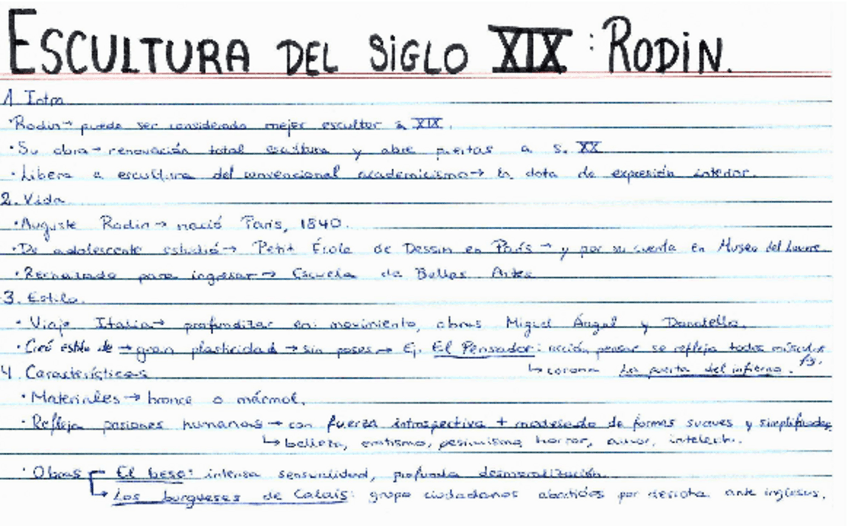 ESCULTURA DEL SIGLO XIX: RODIN.
1. Intro
·Rodin→ puede ser considerado mejor escultor s. XIX.
·Su obra→ renovación total escultura y abre puertas a s. XX
·Libera a escultura del convencional academicismo→ la dota de expresión interior.
2. Vida
·Auguste Rodin→ nació París, 1840.
·De adolescente estudió→ Petit École de Dessin en París→ y por su cuenta en Museo del Louvre.
·Rechazado para ingresar→ Escuela de Bellas Artes
3. Estilo.
·Viaje Italia→ profundizar en: movimiento, obras Miguel Ángel y Donatello.
·Creó estilo de→ gran plasticidad→ sin poses→ Ej. El Pensador: acción pensar se refleja todos músculos
↳ corona La puerta del infierno.
4. Características
·Materiales→ bronce o mármol.
·Refleja pasiones humanas→ con fuerza introspectiva + modelado de formas suaves y simplificadas
↳ belleza, erotismo, pesimismo, horror, amor, intelect.
·Obras El beso: intensa sensualidad, profunda desmoralización.
↳ Los burgueses de Calais: grupo ciudadanos abatidos por derrota ante ingleses.